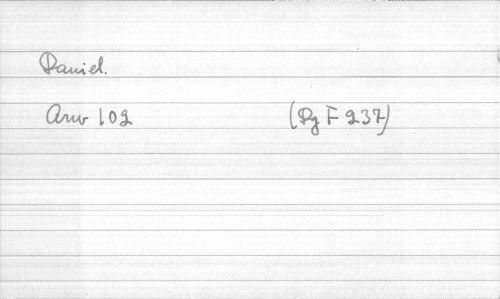 Daniel.
Arw 102 (Pg F 237)